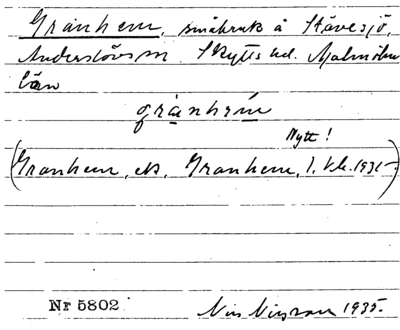 Granhem, småbruk å Stävesjö,
Anderslövs sn Skytts hd. Malmöhus
län
granhem
Nytt!
(Granhem, ek, Granhem, J. kk. 1931-)
Nr 5802 Nils Nilsson 1935.